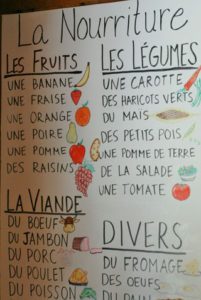 La Nourriture
LES FRUITS
UNE BANANE
UNE FRAISE
UNE ORANGE
UNE POIRE
UNE POMME
DES RAISINS
LES LÉGUMES
UNE CAROTTE
DES HARICOTS VERTS
DU MAIS
DES PETITS POIS
UNE POMME DE TERRE
DE LA SALADE
UNE TOMATE
LA VIANDE
DU BOEUF
DU JAMBON
DU PORC
DU POULET
DU POISSON
DIVERS
DU FROMAGE
DES OEUFS
DU